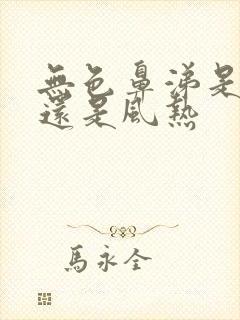 無色鼻涕是
還是風熱
馬永全